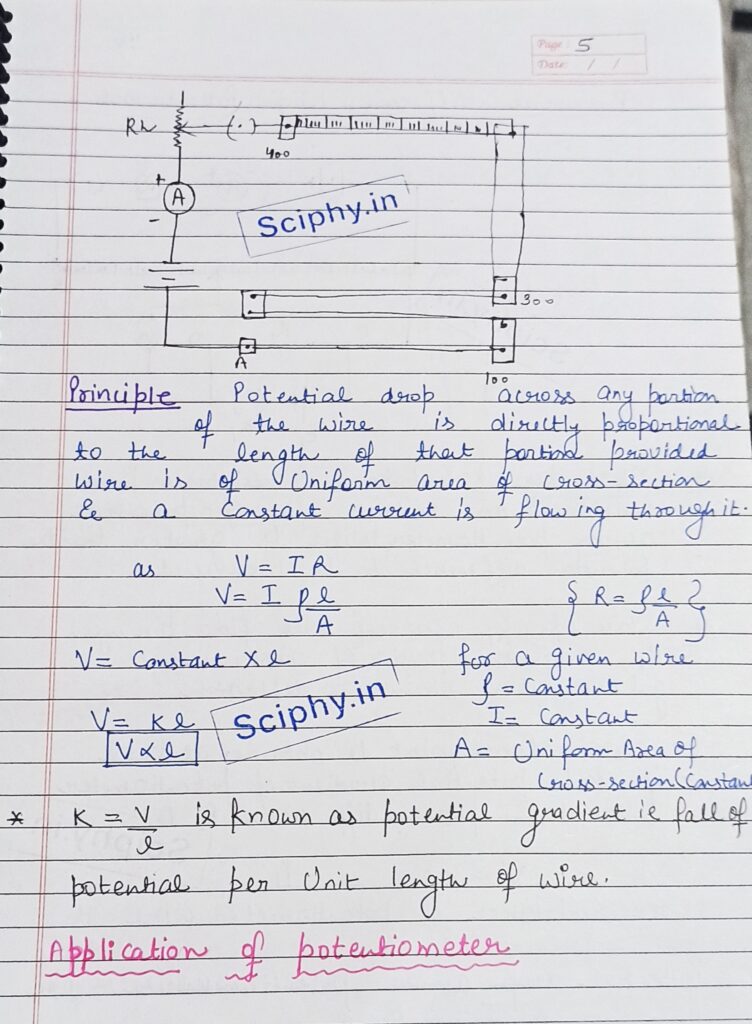 Page: 5
Date: / /
Rh
(.)
400
+
A
-
Sciphy.in
300
A
100
Principle Potential drop across any portion
of the wire is directly proportional
to the length of that portion provided
wire is of Uniform area of cross-section
& a Constant current is flowing through it.
as V = IR
V = I ρl/A { R = ρl/A }
V = Constant × l for a given wire
ρ = Constant
V = Kl I = Constant
Sciphy.in
V ∝ l A = Uniform Area of
Cross-section (Constant
* K = V/l is known as potential gradient ie fall of
potential per Unit length of wire.
Application of potentiometer